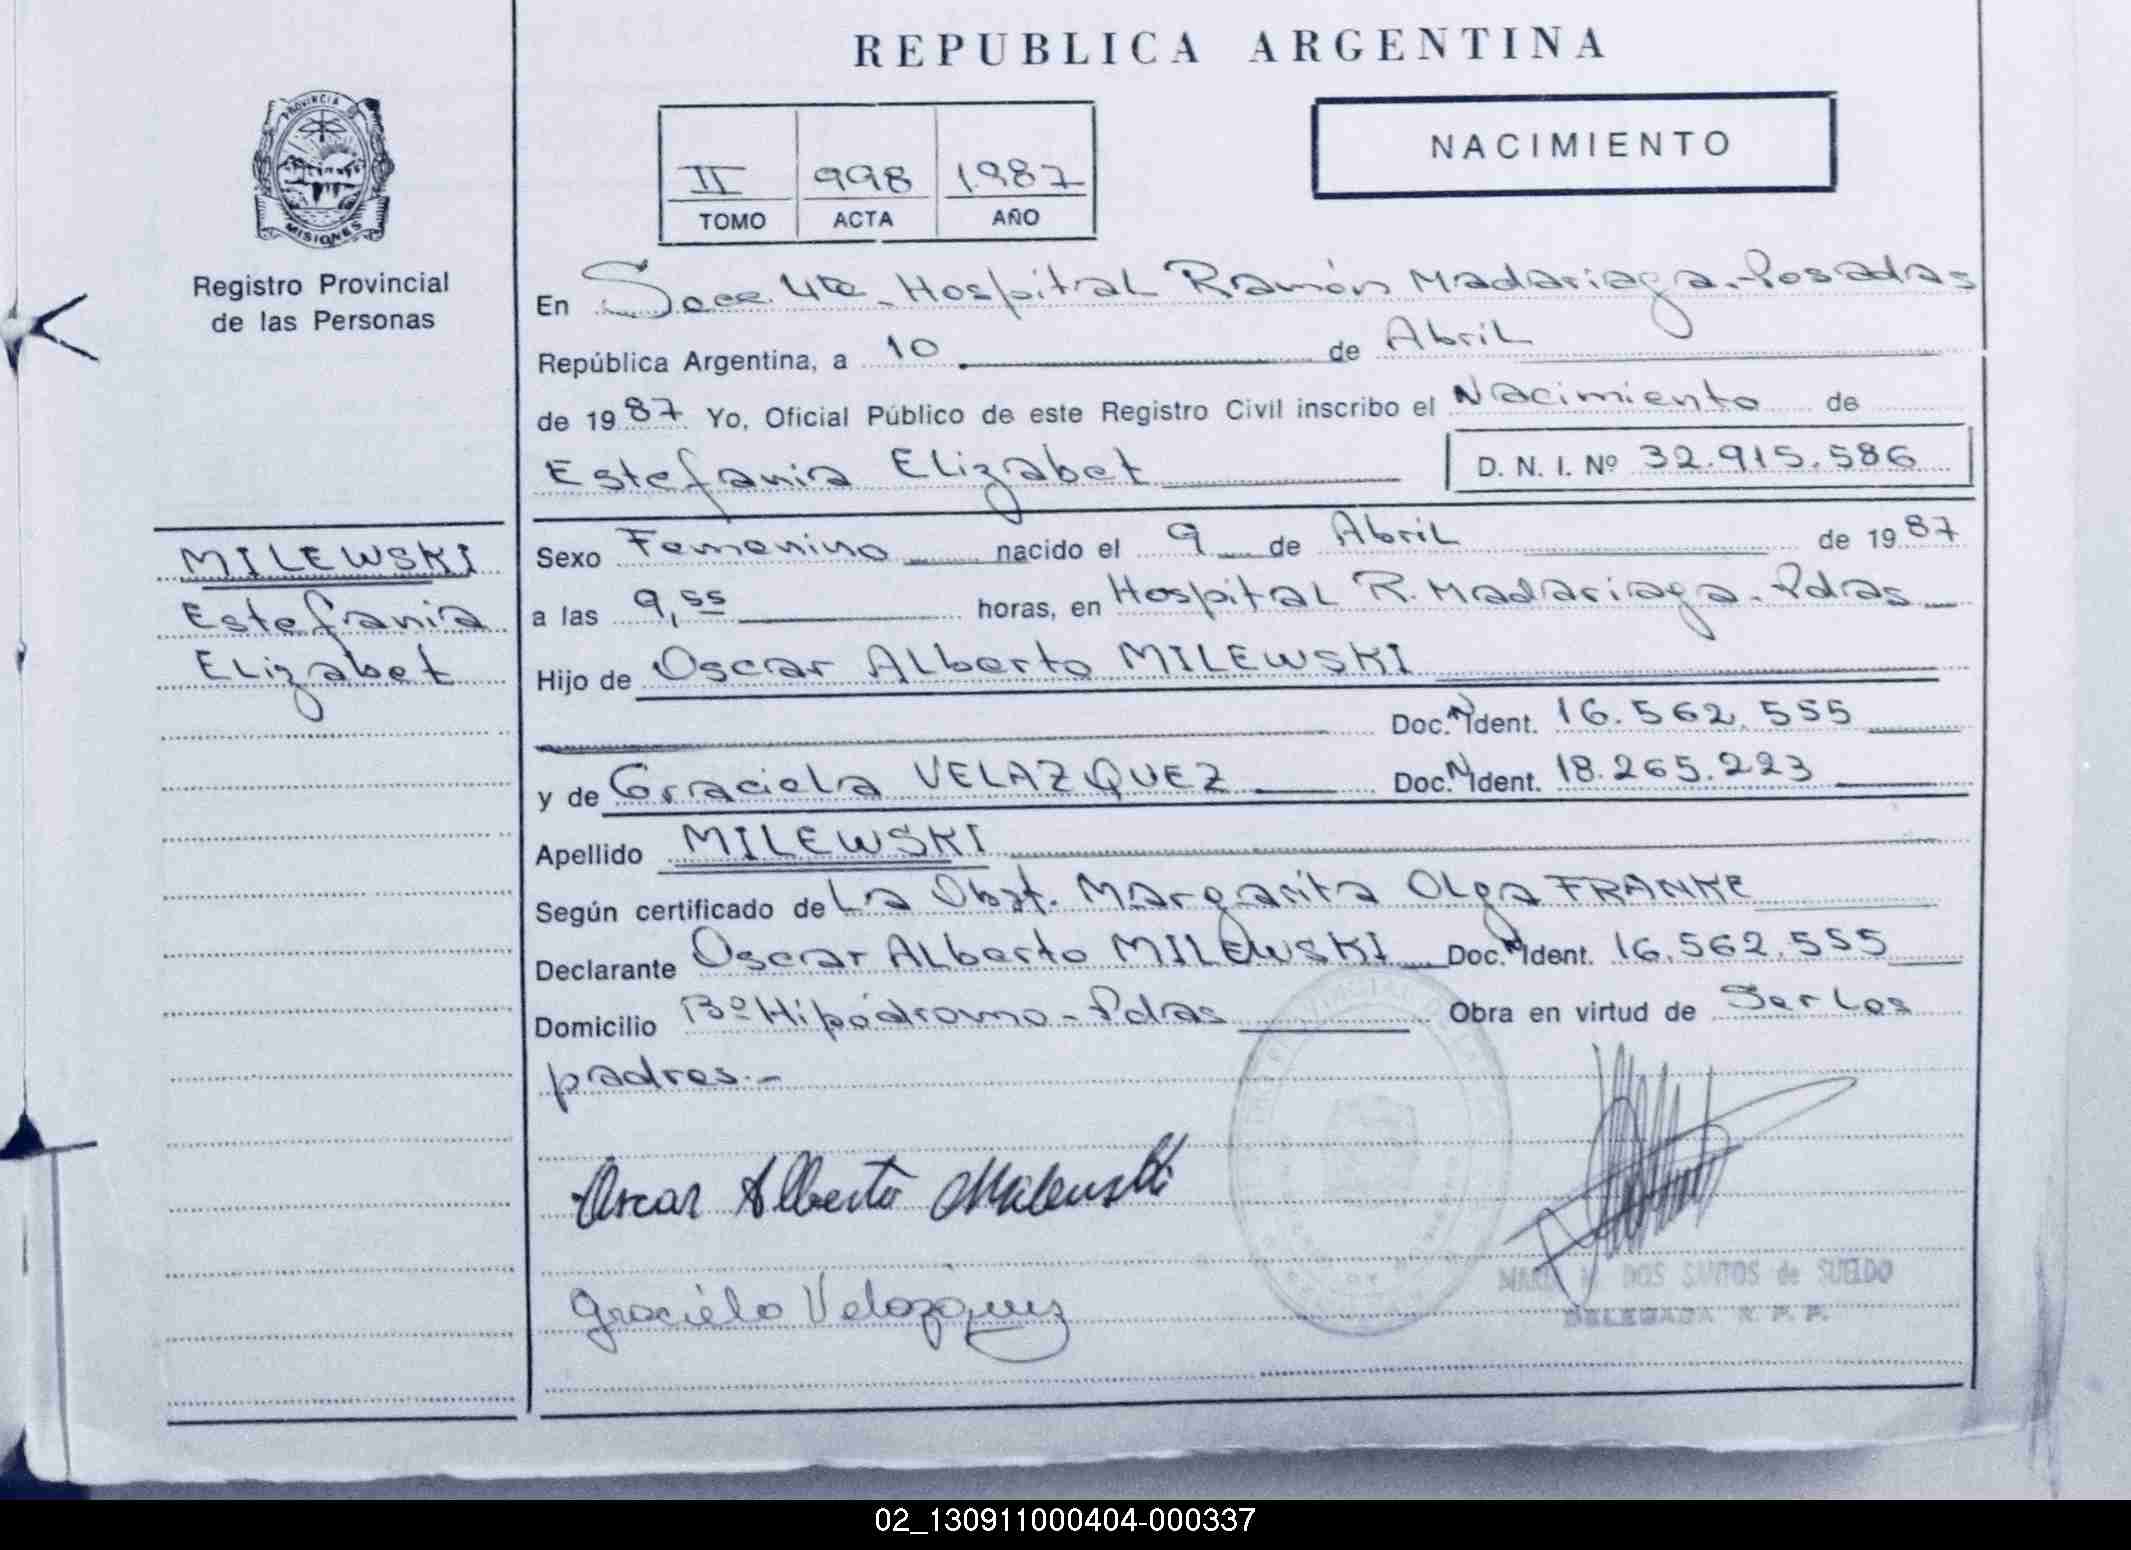 REPUBLICA ARGENTINA
PROVINCIA DE
MISIONES
Registro Provincial
de las Personas
II 998 1987
TOMO ACTA AÑO
NACIMIENTO
En Secc. 4ta - Hospital Ramón Madariaga. Posadas
República Argentina, a 10 de Abril
de 1987 Yo, Oficial Público de este Registro Civil inscribo el Nacimiento de
Estefania Elizabet
D. N. I. Nº 32.915.586
MILEWSKI
Estefania
Elizabet
Sexo Femenino nacido el 9 de Abril de 1987
a las 9,55 horas, en Hospital R. Madariaga. Pdas
Hijo de Oscar Alberto MILEWSKI
Doc. N Ident. 16.562.555
y de Graciela VELAZQUEZ Doc. N Ident. 18.265.223
Apellido MILEWSKI
Según certificado de La Obst. Margarita Olga FRANKE
Declarante Oscar Alberto MILEWSKI Doc. N Ident. 16.562.555
Domicilio Bº Hipódromo - Pdas Obra en virtud de Ser Los
padres.-
Oscar Alberto Milewski
Graciela Velazquez
DOS SANTOS de SUELDO
DELEGADA R. P. P.
02_130911000404-000337